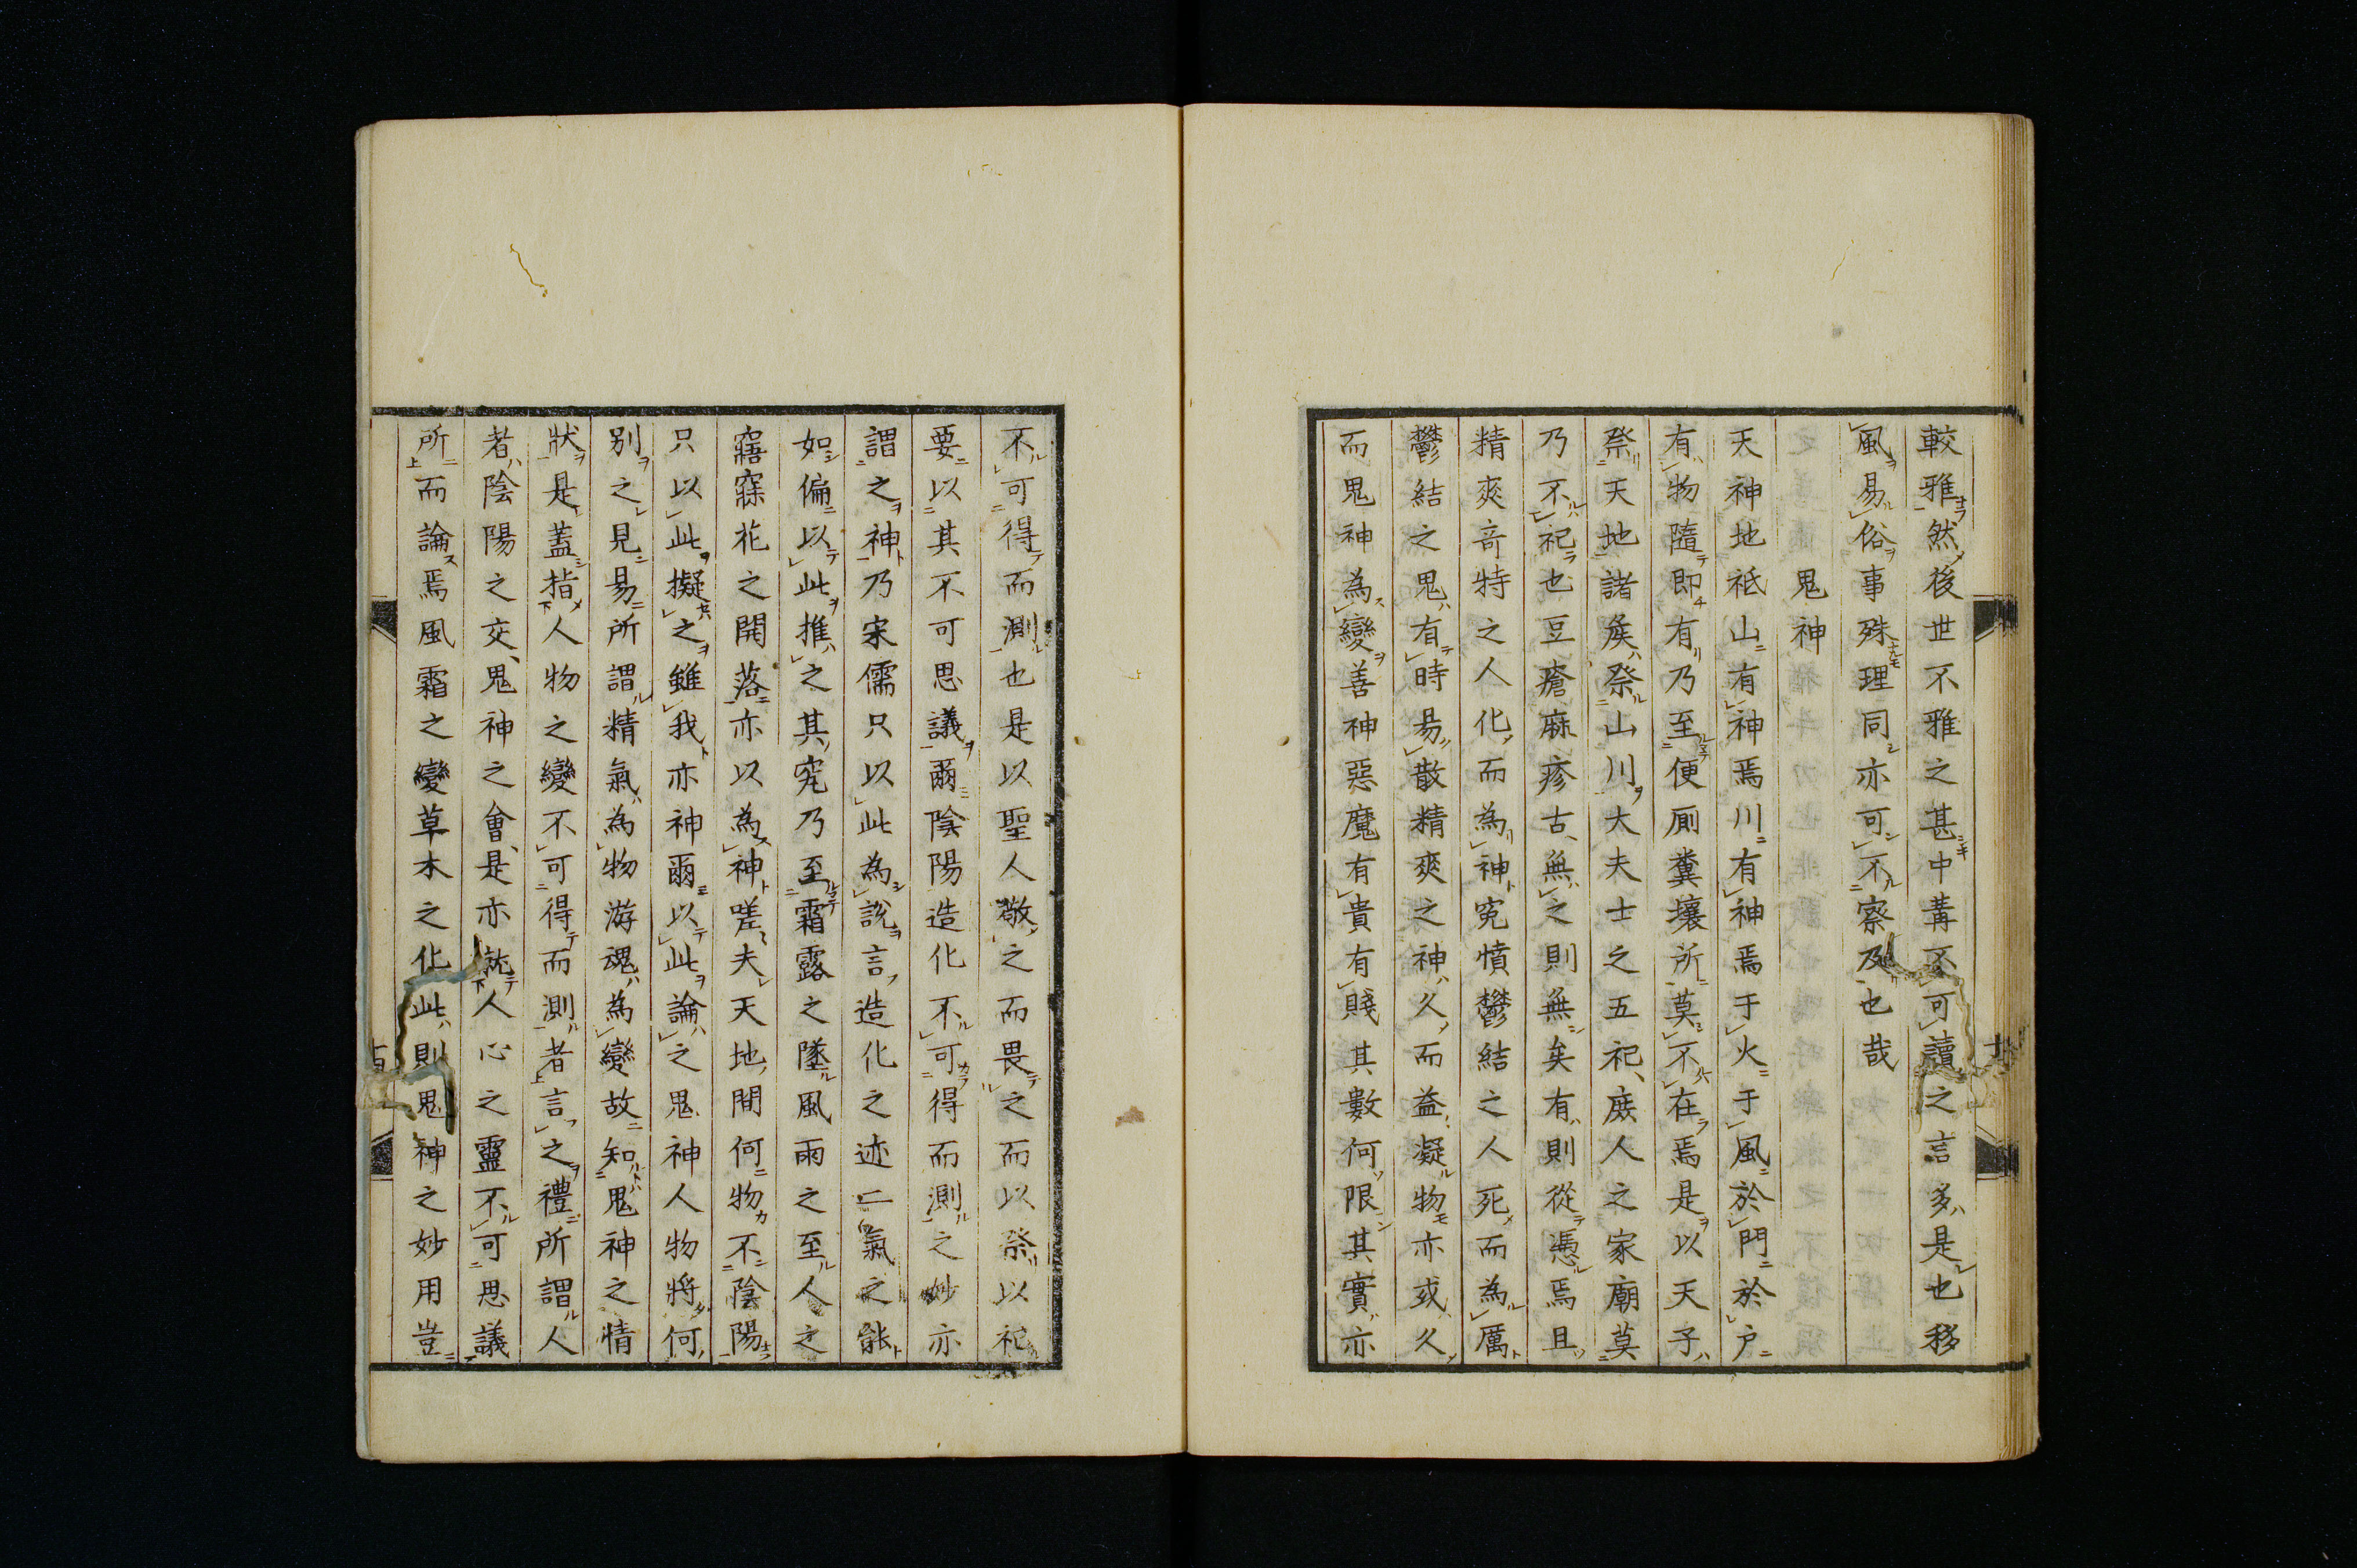 較雅然後世不雅之甚中冓不可讀之言多是也移
風易俗事殊理同亦可不察及也哉
鬼神
天神地祇山有神焉川有神焉于火于風於門於戶
有物隨即有乃至便厠糞壤所莫不在焉是以天子
祭天地諸矦祭山川大夫士之五祀庶人之家廟莫
乃不祀也豆瘡麻疹古無之則無矣有則從憑焉且
精爽竒特之人化而為神寃憤鬱結之人死而為厲
鬱結之鬼有時易散精爽之神久而益凝物亦或久
而鬼神為變善神惡魔有貴有賤其數何限其實亦
不可得而測也是以聖人敬之而畏之而以祭以祀
要以其不可思議爾陰陽造化不可得而測之妙亦
謂之神乃宋儒只以此為說言造化之迹二氣之能
如偏以此推之其究乃至霜露之墜風雨之至人之
寤寐花之開落亦以為神嗟夫天地間何物不陰陽
只以此擬之雖我亦神爾以此論之鬼神人物將何
別之見易所謂精氣為物游魂為變故知鬼神之情
狀是蓋指人物之變不可得而測者言之禮所謂人
者陰陽之交鬼神之會是亦就人心之靈不可思議
所而論焉風霜之變草木之化此則鬼神之妙用豈